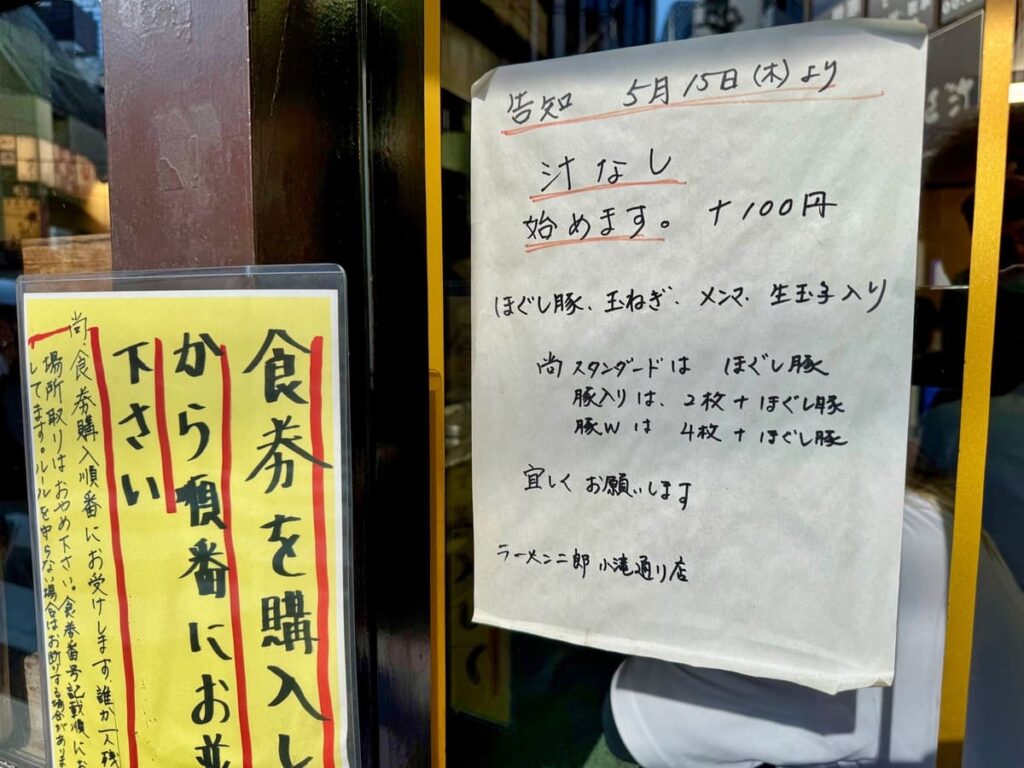 告知 5月15日(木)より
汁なし
始めます。 +100円
ほぐし豚、玉ねぎ、メンマ、生玉子入り
尚 スタンダードは ほぐし豚
豚入りは、2枚+ほぐし豚
豚Wは 4枚+ほぐし豚
宜しくお願いします
ラーメン二郎 小滝通り店
食券を購入し
から順番にお並
下さい
尚、食券購入順番にお受けします、誰か一人残
場所取りはおやめ下さい。食券番号記載順にお
してます。ルールを守らない場合はお断りする場合がありま